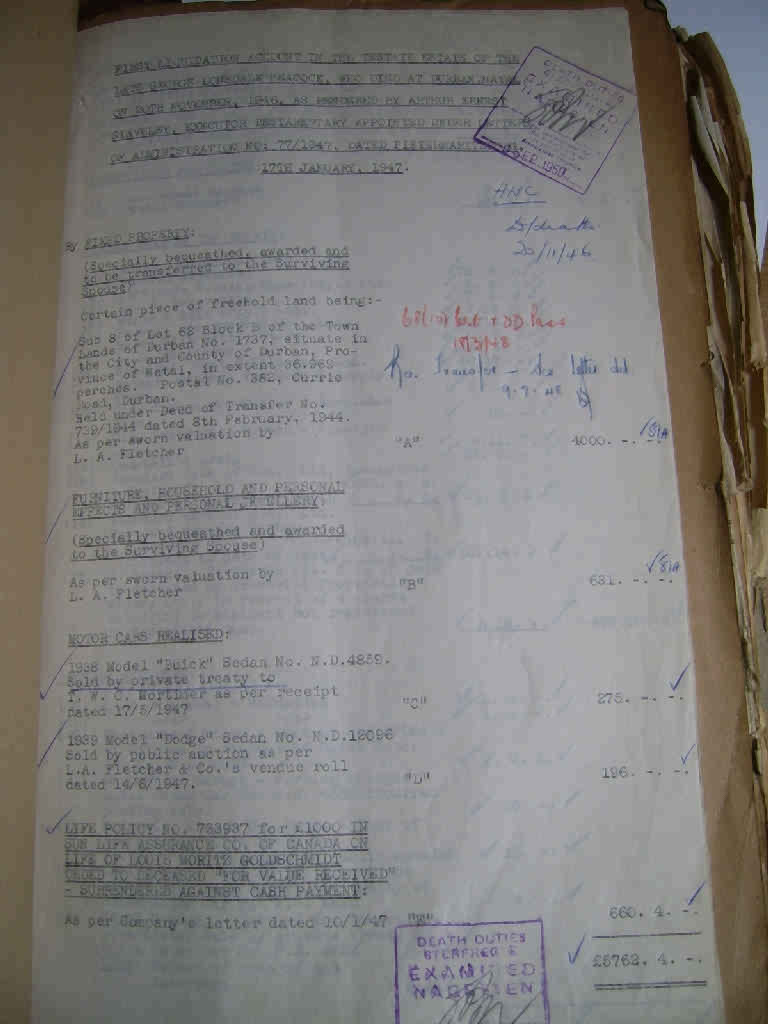 FIRST LIQUIDATION ACCOUNT IN THE TESTATE ESTATE OF THE
LATE GEORGE LONSDALE PEACOCK, WHO DIED AT DURBAN, NATAL
ON 20TH NOVEMBER, 1946, AS RENDERED BY ARTHUR ERNEST
STAVELEY, EXECUTOR TESTAMENTARY APPOINTED UNDER LETTERS
OF ADMINISTRATION NO: 77/1947, DATED PIETERMARITZBURG
17TH JANUARY, 1947.
DEATH DUTIES
EXAMINED
NAGESIEN
SEP. 1950
20/11/46
By FIXED PROPERTY:
(Specially bequeathed, awarded and
to be transferred to the Surviving
Spouse)
Certain piece of freehold land being:-
Sub 8 of Lot 68 Block B of the Town
Lands of Durban No. 1737, situate in
the City and County of Durban, Pro-
vince of Natal, in extent 36.969
perches. Postal No. 382, Currie
Road, Durban.
Held under Deed of Transfer No.
739/1944 dated 8th February, 1944.
As per sworn valuation by
L. A. Fletcher "A" 4000. -. -.
18/3/48
Transfer - See letter dd
9.9.48
FURNITURE, HOUSEHOLD AND PERSONAL
EFFECTS AND PERSONAL JEWELLERY:
(Specially bequeathed and awarded
to the Surviving Spouse)
As per sworn valuation by
L. A. Fletcher "B" 631. -. -.
MOTOR CARS REALISED:
1938 Model "Buick" Sedan No. N.D.4859.
Sold by private treaty to
T. W. C. Mortimer as per receipt
dated 17/5/1947 "C" 275. -. -.
1939 Model "Dodge" Sedan No. N.D.12096
Sold by public auction as per
L.A. Fletcher & Co.'s vendue roll
dated 14/6/1947. "D" 196. -. -.
LIFE POLICY NO. 733937 for £1000 IN
SUN LIFE ASSURANCE CO. OF CANADA ON
LIFE OF LOUIS MORITZ GOLDSCHMIDT
CEDED TO DECEASED "FOR VALUE RECEIVED"
- SURRENDERED AGAINST CASH PAYMENT:
As per Company's letter dated 10/1/47 "E" 660. 4. -.
£5762. 4. -.
DEATH DUTIES
EXAMINED
NAGESIEN